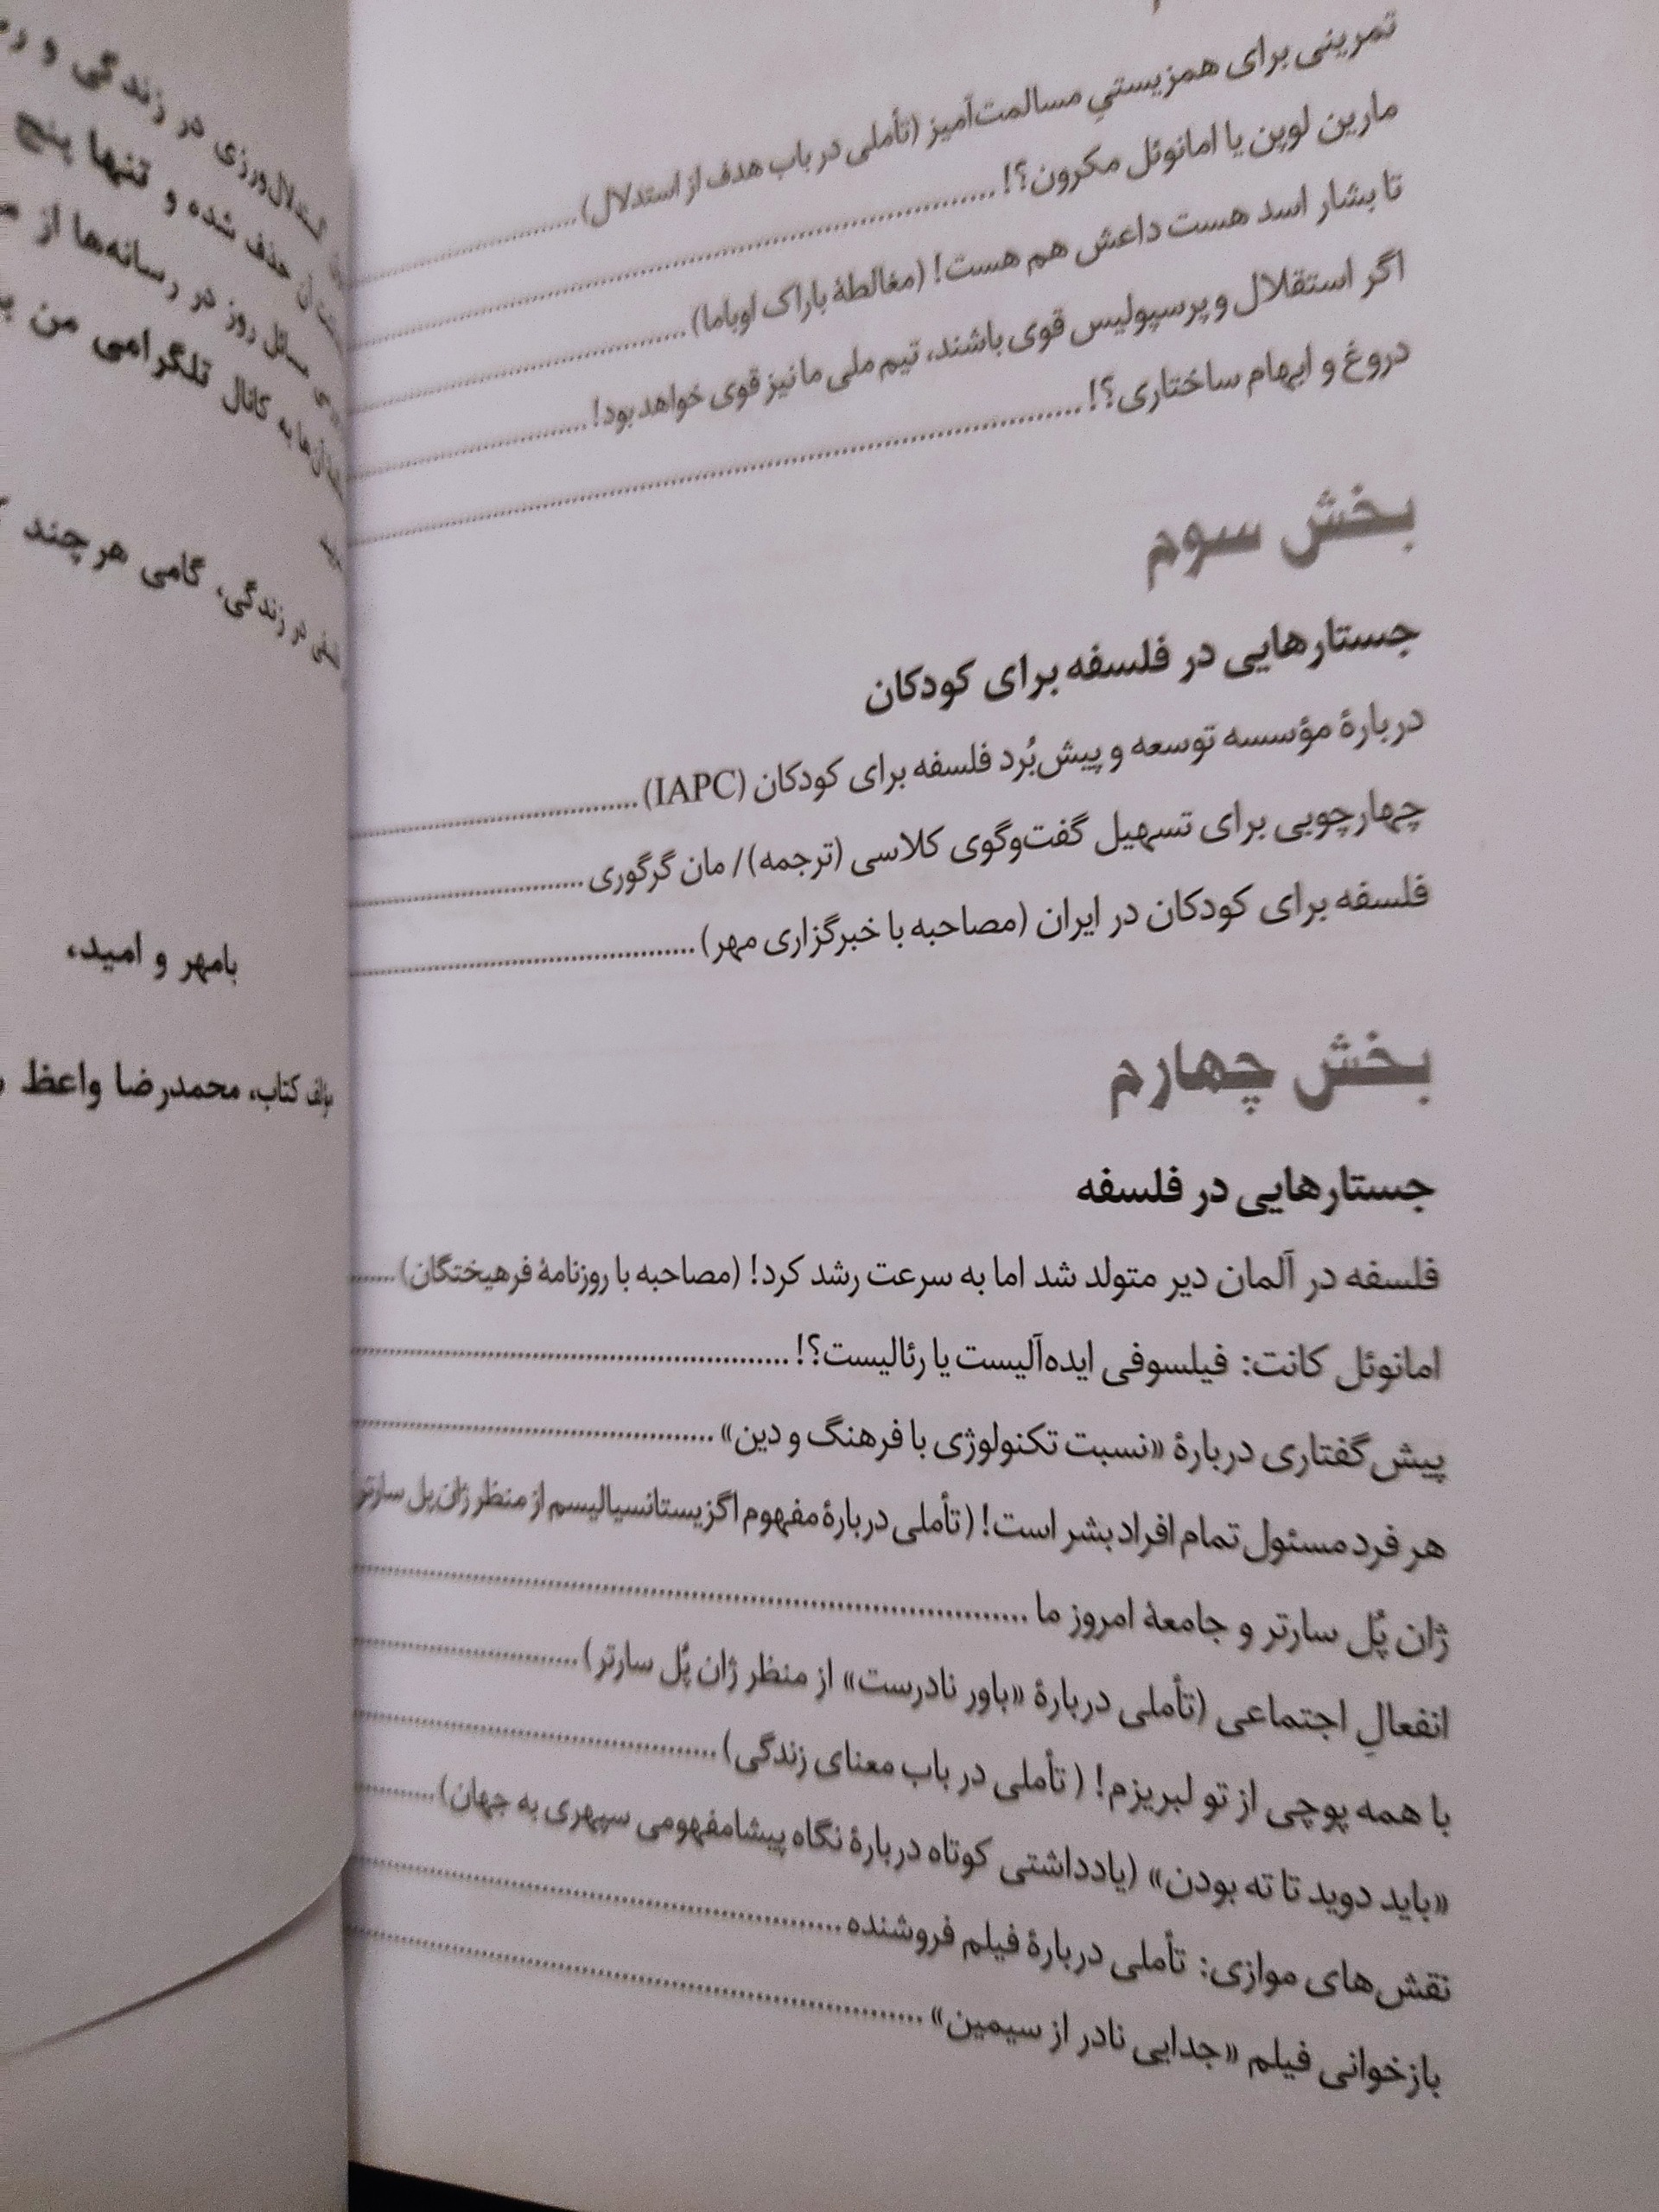 تمرینی برای همزیستیِ مسالمت‌آمیز (تأملی در باب هدف از استدلال)
مارین لوپن یا امانوئل مکرون؟!
تا بشار اسد هست داعش هم هست! (مغالطهٔ باراک اوباما)
اگر استقلال و پرسپولیس قوی باشند، تیم ملی ما نیز قوی خواهد بود!
دروغ و ابهام ساختاری؟!
بخش سوم
جستارهایی در فلسفه برای کودکان
دربارهٔ مؤسسه توسعه و پیش‌بُرد فلسفه برای کودکان (IAPC)
چهارچوبی برای تسهیل گفت‌وگوی کلاسی (ترجمه)/ مان گرگوری
فلسفه برای کودکان در ایران (مصاحبه با خبرگزاری مهر)
بخش چهارم
جستارهایی در فلسفه
فلسفه در آلمان دیر متولد شد اما به سرعت رشد کرد! (مصاحبه با روزنامهٔ فرهیختگان)
امانوئل کانت: فیلسوفی ایده‌آلیست یا رئالیست؟!
پیش‌گفتاری دربارهٔ «نسبت تکنولوژی با فرهنگ و دین»
هر فرد مسئول تمام افراد بشر است! (تأملی دربارهٔ مفهوم اگزیستانسیالیسم از منظر ژان پل سارتر
ژان پُل سارتر و جامعهٔ امروز ما
انفعالِ اجتماعی (تأملی دربارهٔ «باور نادرست» از منظر ژان پُل سارتر)
با همه پوچی از تو لبریزم! (تأملی در باب معنای زندگی)
«باید دوید تا ته بودن» (یادداشتی کوتاه دربارهٔ نگاه پیشامفهومی سپهری به جهان)
نقش‌های موازی: تأملی دربارهٔ فیلم فروشنده
بازخوانی فیلم «جدایی نادر از سیمین»
استدلال‌ورزی در زندگی و
آن حذف شده و تنها پنج
مسائل روز در رسانه‌ها از
به کانال تلگرامی من
در زندگی، گامی هرچند
بامهر و امید،
مؤلف کتاب، محمدرضا واعظ